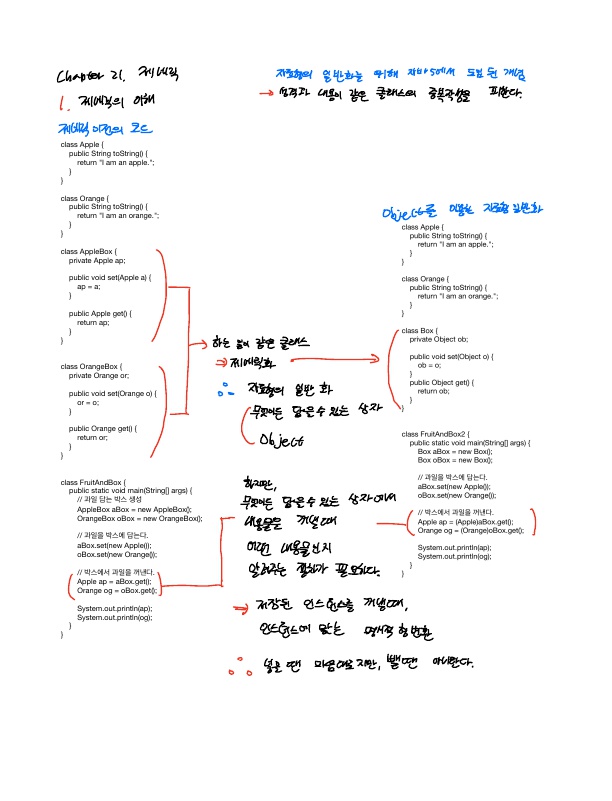 Chapter 21. 제네릭
1. 제네릭의 이해
자료형의 일반화를 위해 자바5에서 도입된 개념
→ 성격과 내용이 같은 클래스의 중복작성을 피한다.
제네릭 이전의 코드
class Apple {
public String toString() {
return "I am an apple.";
}
}
class Orange {
public String toString() {
return "I am an orange.";
}
}
class AppleBox {
private Apple ap;
public void set(Apple a) {
ap = a;
}
public Apple get() {
return ap;
}
}
class OrangeBox {
private Orange or;
public void set(Orange o) {
or = o;
}
public Orange get() {
return or;
}
}
class FruitAndBox {
public static void main(String[] args) {
// 과일 담는 박스 생성
AppleBox aBox = new AppleBox();
OrangeBox oBox = new OrangeBox();
// 과일을 박스에 담는다.
aBox.set(new Apple());
oBox.set(new Orange());
// 박스에서 과일을 꺼낸다.
Apple ap = aBox.get();
Orange og = oBox.get();
System.out.println(ap);
System.out.println(og);
}
}
→ 하는 일이 같은 클래스
⇒ 제네릭화
∴ 자료형의 일반화
무엇이든 담을 수 있는 상자
Object
하지만,
무엇이든 담을 수 있는 상자에서
내용물을 꺼낼때
어떤 내용물인지
알려주는 절차가 필요하다.
⇒ 저장된 인스턴스를 꺼낼때,
인스턴스에 맞는 명시적 형변환
∴ 넣을 땐 마음대로지만, 뺄땐 아니란다.
Object를 이용한 자료형 일반화
class Apple {
public String toString() {
return "I am an apple.";
}
}
class Orange {
public String toString() {
return "I am an orange.";
}
}
class Box {
private Object ob;
public void set(Object o) {
ob = o;
}
public Object get() {
return ob;
}
}
class FruitAndBox2 {
public static void main(String[] args) {
Box aBox = new Box();
Box oBox = new Box();
// 과일을 박스에 담는다.
aBox.set(new Apple());
oBox.set(new Orange());
// 박스에서 과일을 꺼낸다.
Apple ap = (Apple)aBox.get();
Orange og = (Orange)oBox.get();
System.out.println(ap);
System.out.println(og);
}
}